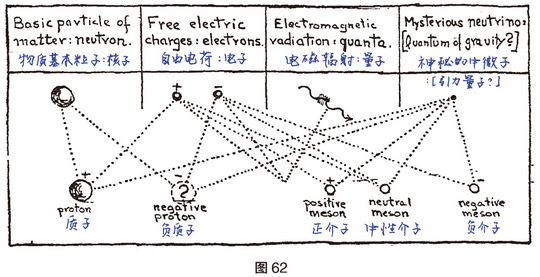 Basic particle of
matter: neutron.
物质基本粒子:核子
Free electric
charges: electrons.
自由电荷:电子
Electromagnetic
radiation: quanta.
电磁辐射:量子
Mysterious neutrino:
[Quantum of gravity?]
神秘的中微子
:[引力量子?]
+
−
+
−
?
+
−
proton
质子
negative
proton
负质子
positive
meson
正介子
neutral
meson
中性介子
negative
meson
负介子
图 62